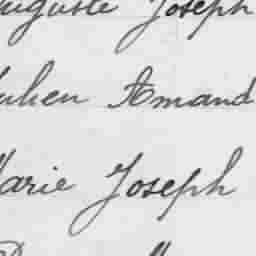 Auguste Joseph
Julien Amand
Marie Joseph